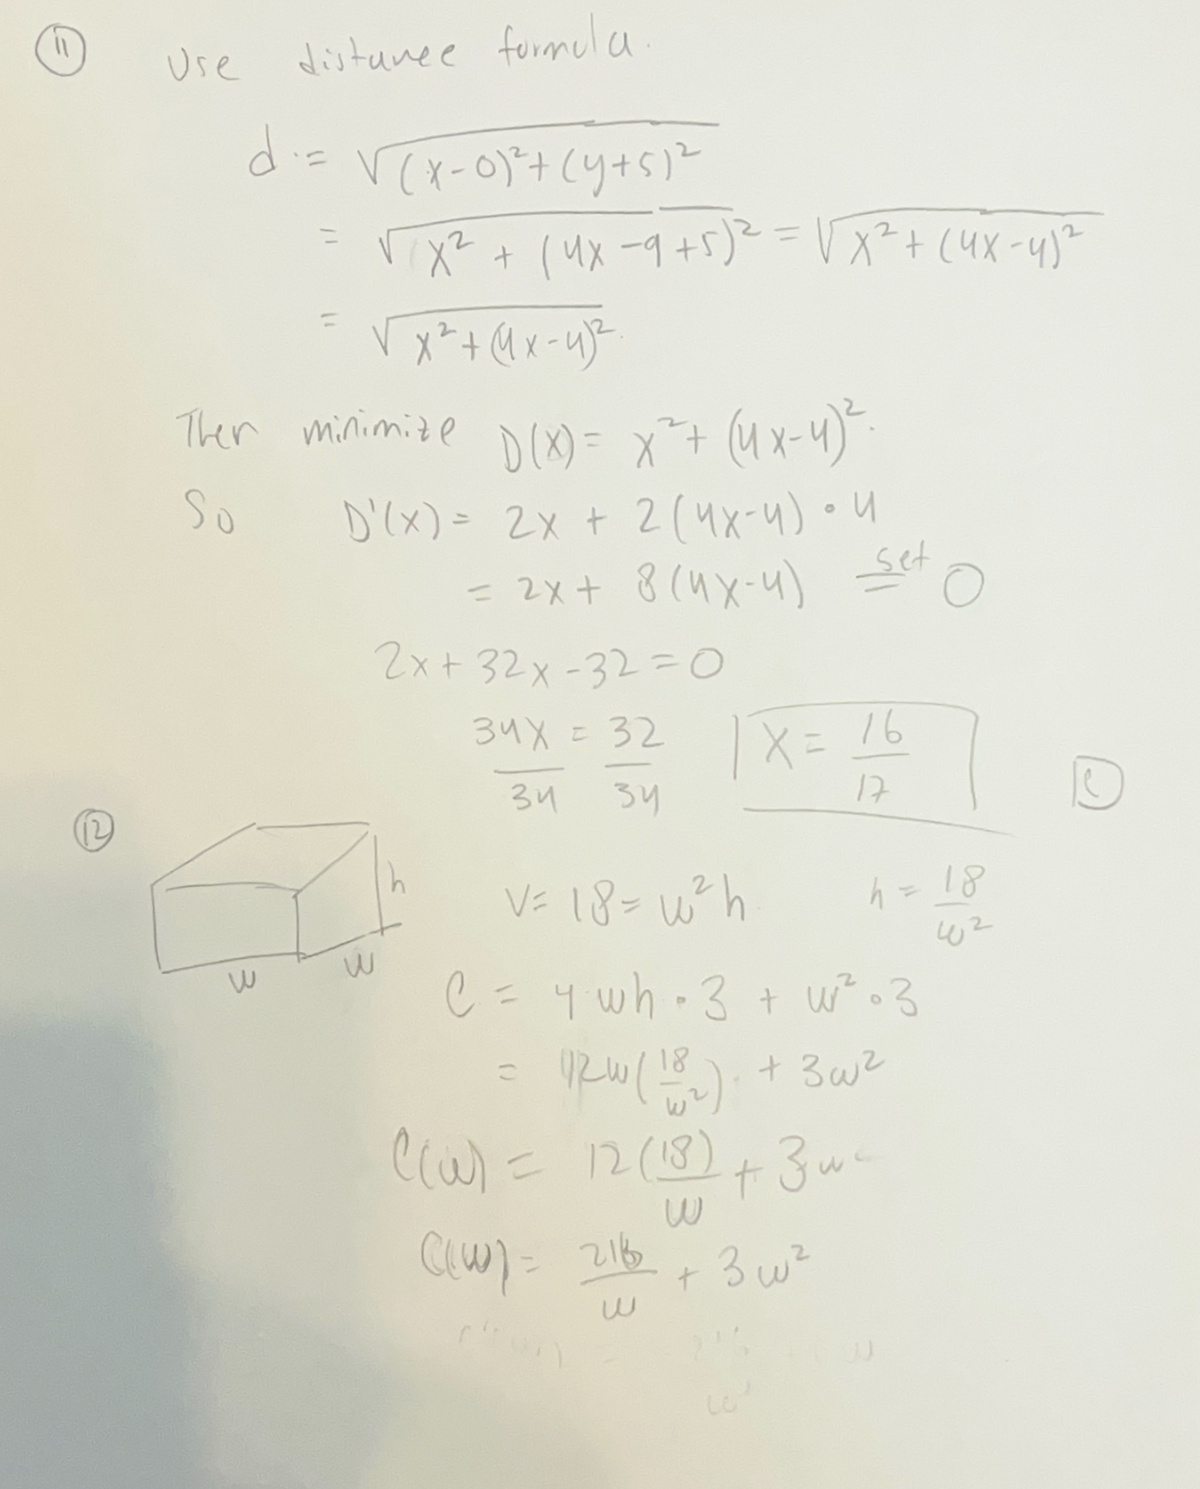 ⑪ Use distance formula.
d = √((x-0)²+(y+5)²)
= √(x² + (4x-9+5)²) = √(x²+(4x-4)²)
= √(x²+(4x-4)²).
Then minimize D(x) = x²+(4x-4)².
So D'(x) = 2x + 2(4x-4)·4
= 2x + 8(4x-4) set= 0
2x + 32x - 32 = 0
34x/34 = 32/34 x = 16/17
⑫ h w w V = 18 = w²h h = 18/w²
C = 4wh·3 + w²·3
= 12w(18/w²) + 3w²
C(w) = 12(18)/w + 3w
C(w) = 216/w + 3w²